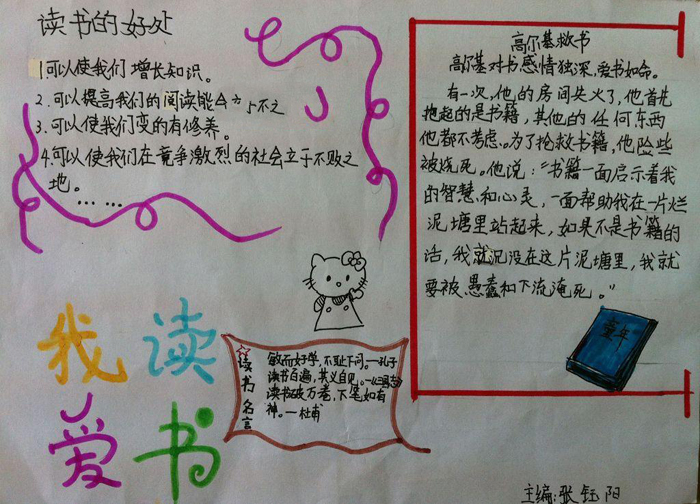 读书的好处
1可以使我们增长知识。
2.可以提高我们的阅读能
3.可以使我们变的有修养。
4.可以使我们在竟争激烈的社会立于不败之
地。
……
高尔基救书
高尔基对书感情独深,爱书如命。
有一次,他的房间失火了,他首先
抱起的是书籍,其他的任何东西
他都不考虑。为了抢救书籍,他险些
被烧死。他说:"书籍一面启示着我
的智慧和心灵,一面帮助我在一片烂
泥塘里站起来,如果不是书籍的
话,我就沉没在这片泥塘里,我就
要被愚蠢和下流淹死。"
童年
我读
爱书
读书名言
敏而好学,不耻下问。—孔子
读书百遍,其义自见。—《三国志》
读书破万卷,下笔如有
神。—杜甫
主编:张钰阳